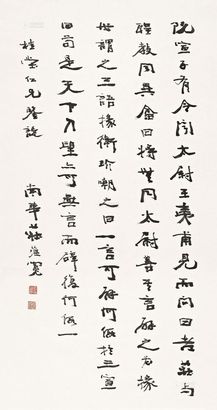 阮宣子有令聞太尉王夷甫見而問曰老莊與
聖教同異畣曰將無同太尉善其言辟之為掾
世謂之三語掾衛玠嘲之曰一言可辟何假於三宣
曰苟是天下人望亦可無言而辟復何假一
仁兄
南華莊蘊寬